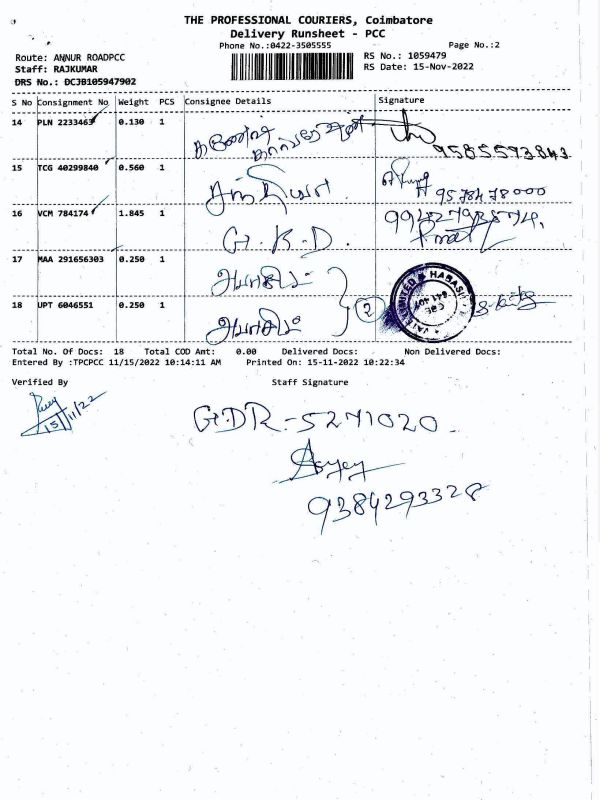 THE PROFESSIONAL COURIERS, Coimbatore
Delivery Runsheet - PCC
Phone No.:0422-3505555
Page No.:2
Route: ANNUR ROADPCC
RS No.: 1059479
Staff: RAJKUMAR
RS Date: 15-Nov-2022
DRS No.: DCJB105947902
S No Consignment No Weight PCS Consignee Details Signature
14 PLN 2233463 0.130 1
9585593843
15 TCG 40299840 0.560 1
9578478000
16 VCM 784174 1.845 1 G.K.D.
17 MAA 291656303 0.250 1
18 UPT 6046551 0.250 1
2
Total No. Of Docs: 18 Total COD Amt: 0.00 Delivered Docs: Non Delivered Docs:
Entered By :TPCPCC 11/15/2022 10:14:11 AM Printed On: 15-11-2022 10:22:34
Verified By Staff Signature
15/11/22
GDR-5271020
9384293328